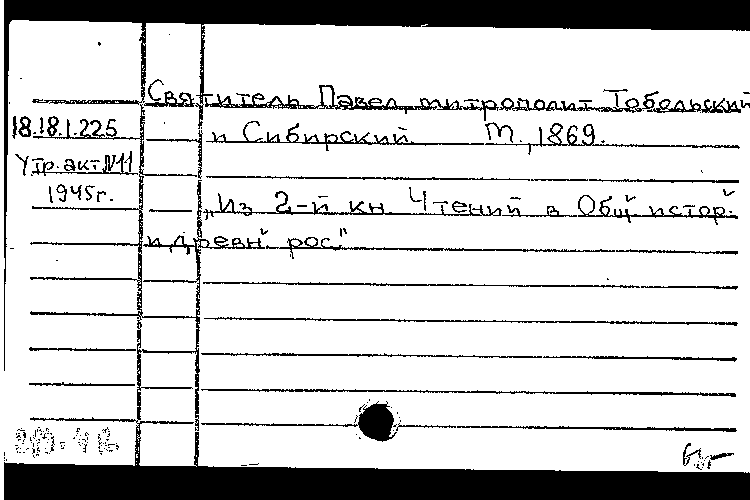 Святитель Павел, митрополит Тобольский
18.18.1.225
и Сибирский. М., 1869.
Утр. акт №11
1945г.
„Из 2-й кн. Чтений в Общ. истор.
и древн. рос."